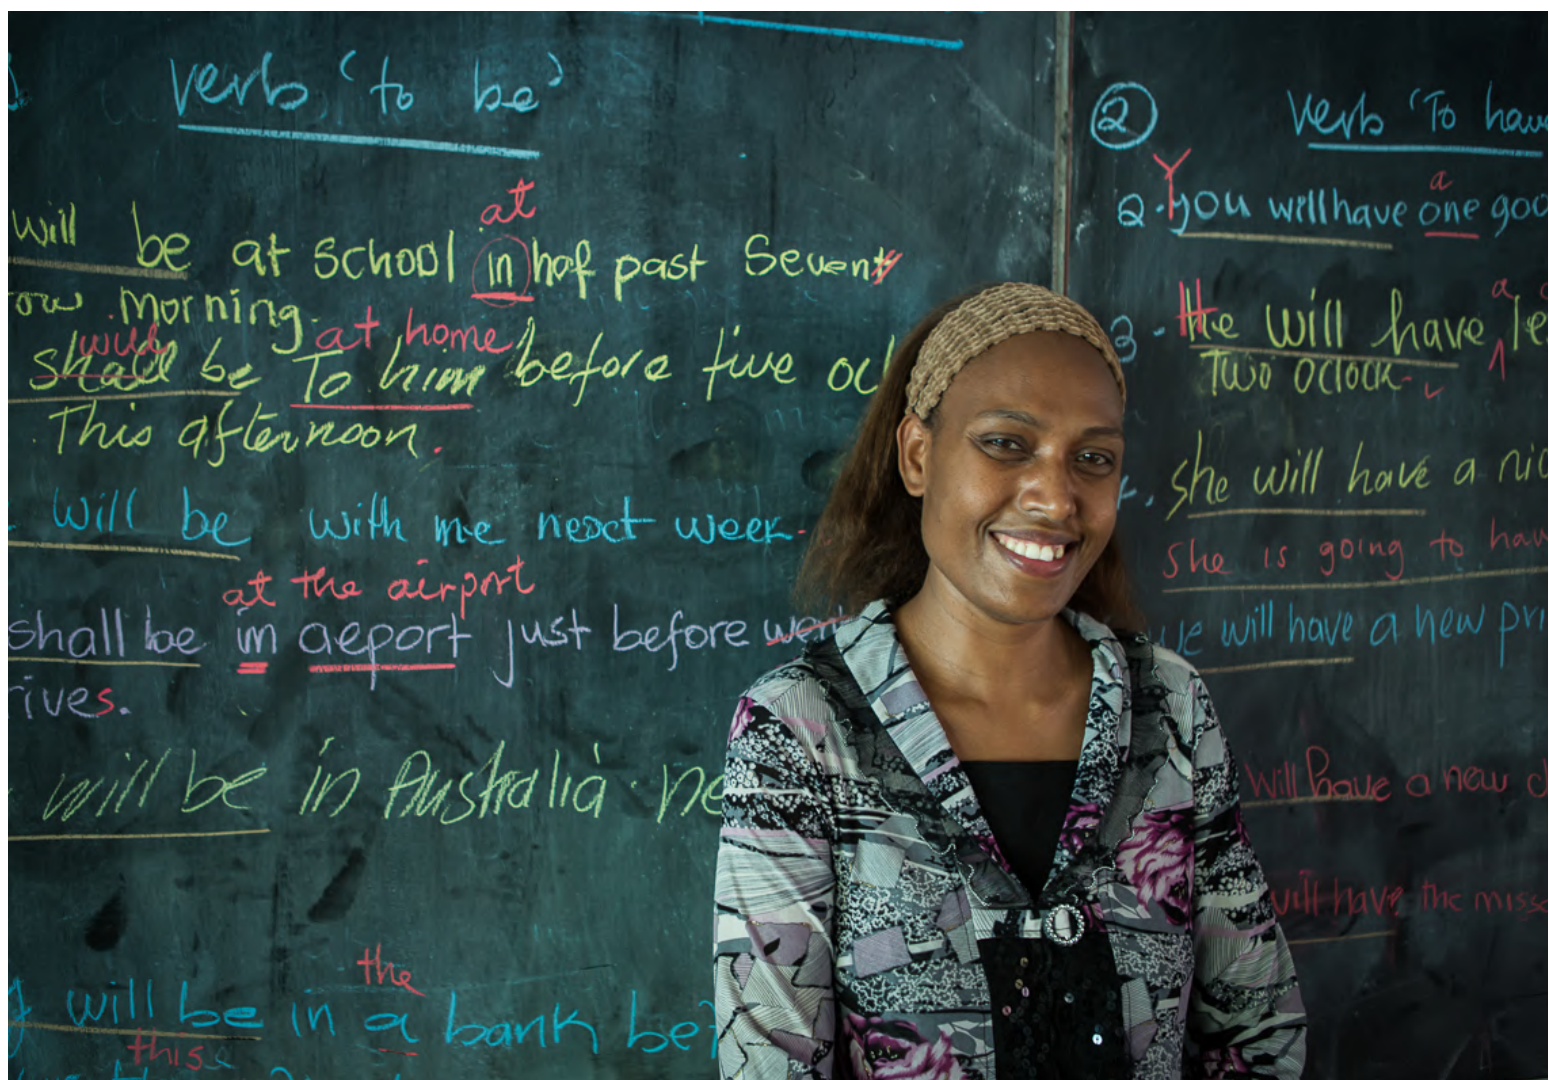 verb 'to be'
at
will be at school in hof past Seventy
ow morning.
will at home
shall be To him before five ocl
This afternoon.
will be with me next week.
at the airport
shall be in aeport just before went
rives.
will be in Australia. ne
the
will be in a bank be
this
2 verb 'To have
Y a
2. you will have one goo
a
3. He will have le
Two oclock.
she will have a nic
She is going to hav
we will have a new pri
will have a new d
will have the miss